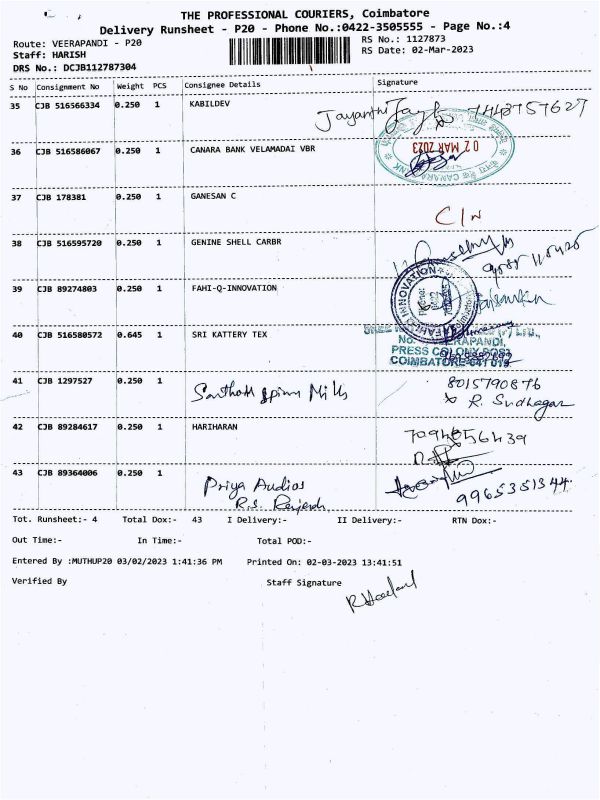 THE PROFESSIONAL COURIERS, Coimbatore
Delivery Runsheet - P20 - Phone No.:0422-3505555 - Page No.:4
Route: VEERAPANDI - P20
RS No.: 1127873
Staff: HARISH
RS Date: 02-Mar-2023
DRS No.: DCJB112787304
S No Consignment No Weight PCS Consignee Details Signature
35 CJB 516566334 0.250 1 KABILDEV Jayanthi 7448757627
36 CJB 516586067 0.250 1 CANARA BANK VELAMADAI VBR 02 MAR 2023
37 CJB 178381 0.250 1 GANESAN C
38 CJB 516595720 0.250 1 GENINE SHELL CARBR
39 CJB 89274803 0.250 1 FAHI-Q-INNOVATION INNOVATION
40 CJB 516580572 0.645 1 SRI KATTERY TEX
VEERAPANDI,
PRESS COLONY POST
COIMBATORE-641 019.
41 CJB 1297527 0.250 1 Mills 8015790876
R. Sudhagar
42 CJB 89284617 0.250 1 HARIHARAN
43 CJB 89364006 0.250 1 Priya Audios 9965351344
R.S. Rajesh
Tot. Runsheet:- 4 Total Dox:- 43 I Delivery:- II Delivery:- RTN Dox:-
Out Time:- In Time:- Total POD:-
Entered By :MUTHUP20 03/02/2023 1:41:36 PM Printed On: 02-03-2023 13:41:51
Verified By Staff Signature